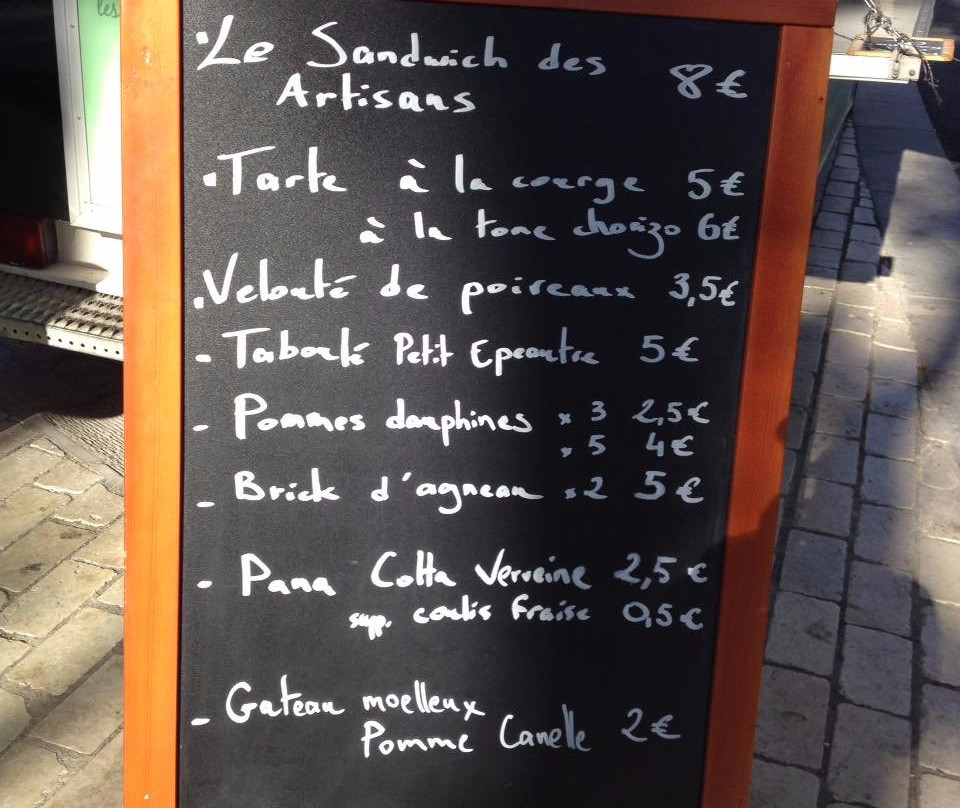 les
·Le Sandwich des
Artisans 8€
·Tarte à la courge 5€
à la tome chorizo 6€
.Velouté de poireaux 3,5€
- Taboulé Petit Epeautre 5€
- Pommes dauphines x 3 2,5€
x 5 4€
- Brick d'agneau x2 5€
- Pana Cotta Verveine 2,5€
supp. coulis fraise 0,5€
- Gateau moelleux
Pomme Canelle 2€